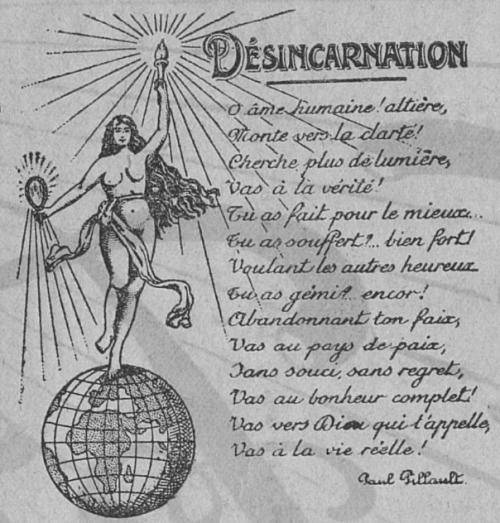 DÉSINCARNATION
O âme humaine! altière,
Monte vers la clarté!
Cherche plus de lumière,
Vas à la vérité!
Tu as fait pour le mieux...
Tu as souffert?.. bien fort!
Voulant les autres heureux
Tu as gémi?.. encor!
Abandonnant ton faix,
Vas au pays de paix,
Sans souci, sans regret,
Vas au bonheur complet!
Vas vers Dieu qui t'appelle,
Vas à la vie réelle!
Paul Pillault.